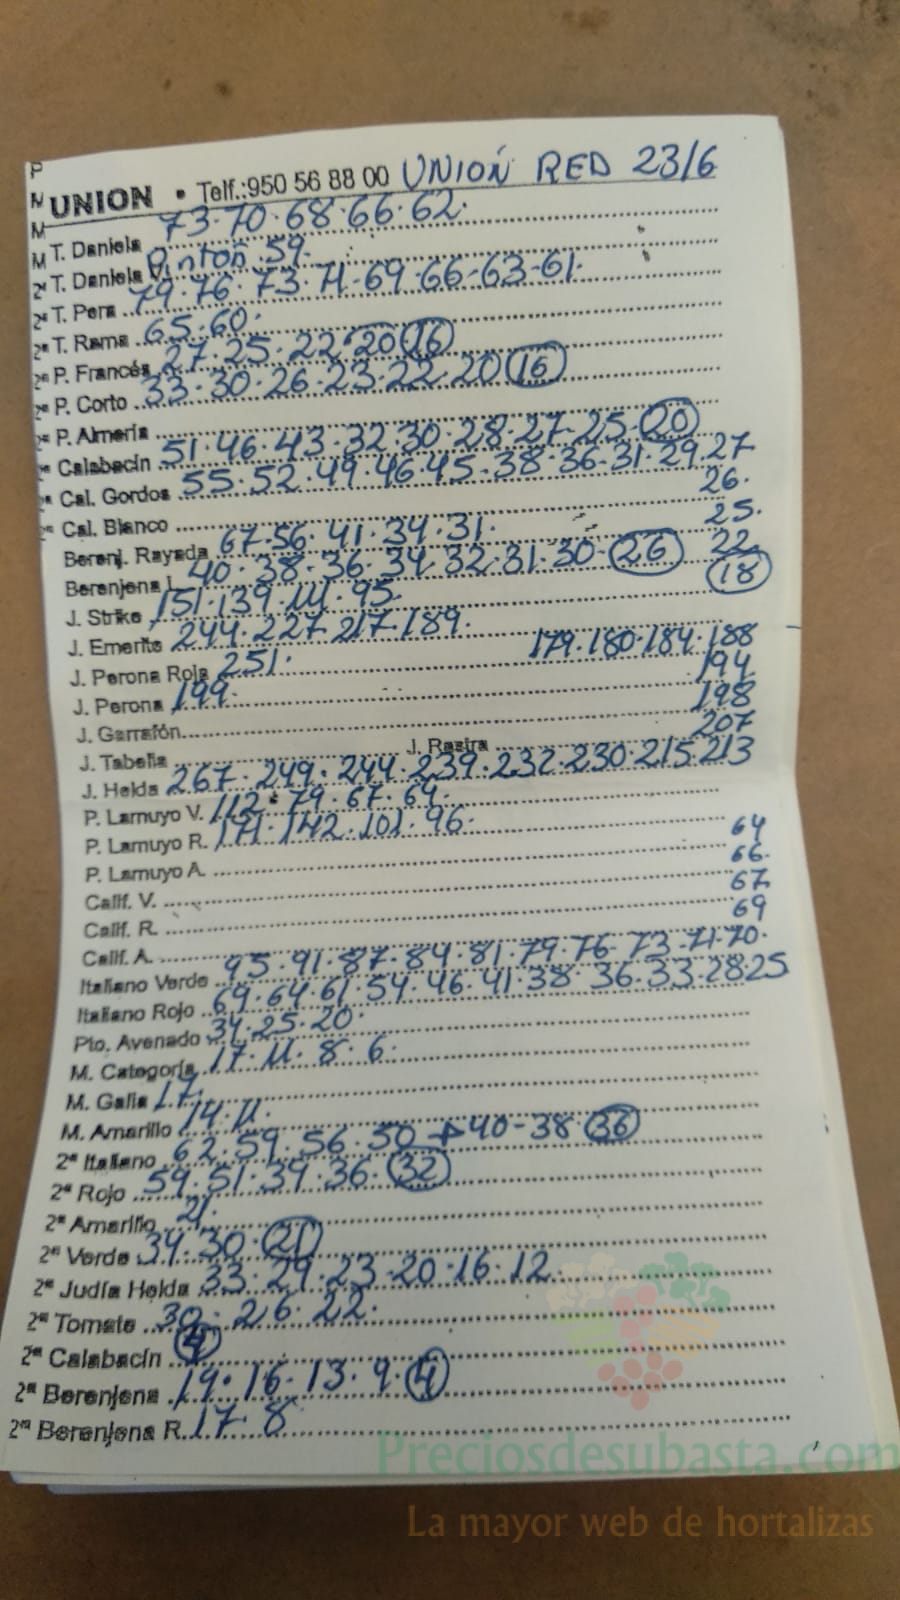 UNION • Telf.:950 56 88 00 UNIOÑ RED 23/6
T. Daniela 73·70·68·66·62·
2ª T. Daniela Pintoñ 59·
2ª T. Pera 79·76·73·71·69·66·63·61·
2ª T. Rama 65·60·
2ª P. Francés 27·25·22·20 16
P. Corto 33·30·26·23·22·20 16
P. Almería
Calabacín 51·46·43·32·30·28·27·25·20
Cal. Gordos 55·52·49·46·45·38·36·31·29·27
26·
Cal. Blanco
25·
Berenj. Rayada 67·56·41·34·31·
22
Berenjena L 40·38·36·34·32·31·30·26
18
J. Strike 151·139·111·95·
J. Emerite 244·227·217·189·
179·180·184·188
J. Perona Roja 251·
194
J. Perona 199·
198
J. Garrafón
207
J. Tabella J. Razira
J. Helda 267·249·244·239·232·230·215·213
P. Lamuyo V. 112·79·67·64·
P. Lamuyo R. 171·142·101·96·
64
P. Lamuyo A.
66·
Calif. V.
67
Calif. R.
69
Calif. A.
Italiano Verde 95·91·87·84·81·79·76·73·71·70·
Italiano Rojo 69·64·61·54·46·41·38·36·33·28·25
Pto. Avenado 34·25·20·
M. Categoría 17·11·8·6·
M. Galia 17·
M. Amarillo 14·11·
2ª Italiano 62·59·56·50 → 40-38 36
2ª Rojo 59·51·39·36·32
2ª Amarillo 21·
2ª Verde 34·30·21
2ª Judía Helda 33·29·23·20·16·12
2ª Tomate 30·26·22·
2ª Calabacín 4
2ª Berenjena 19·16·13·9·4
2ª Berenjena R. 17·8
Preciosdesubasta.com
La mayor web de hortalizas